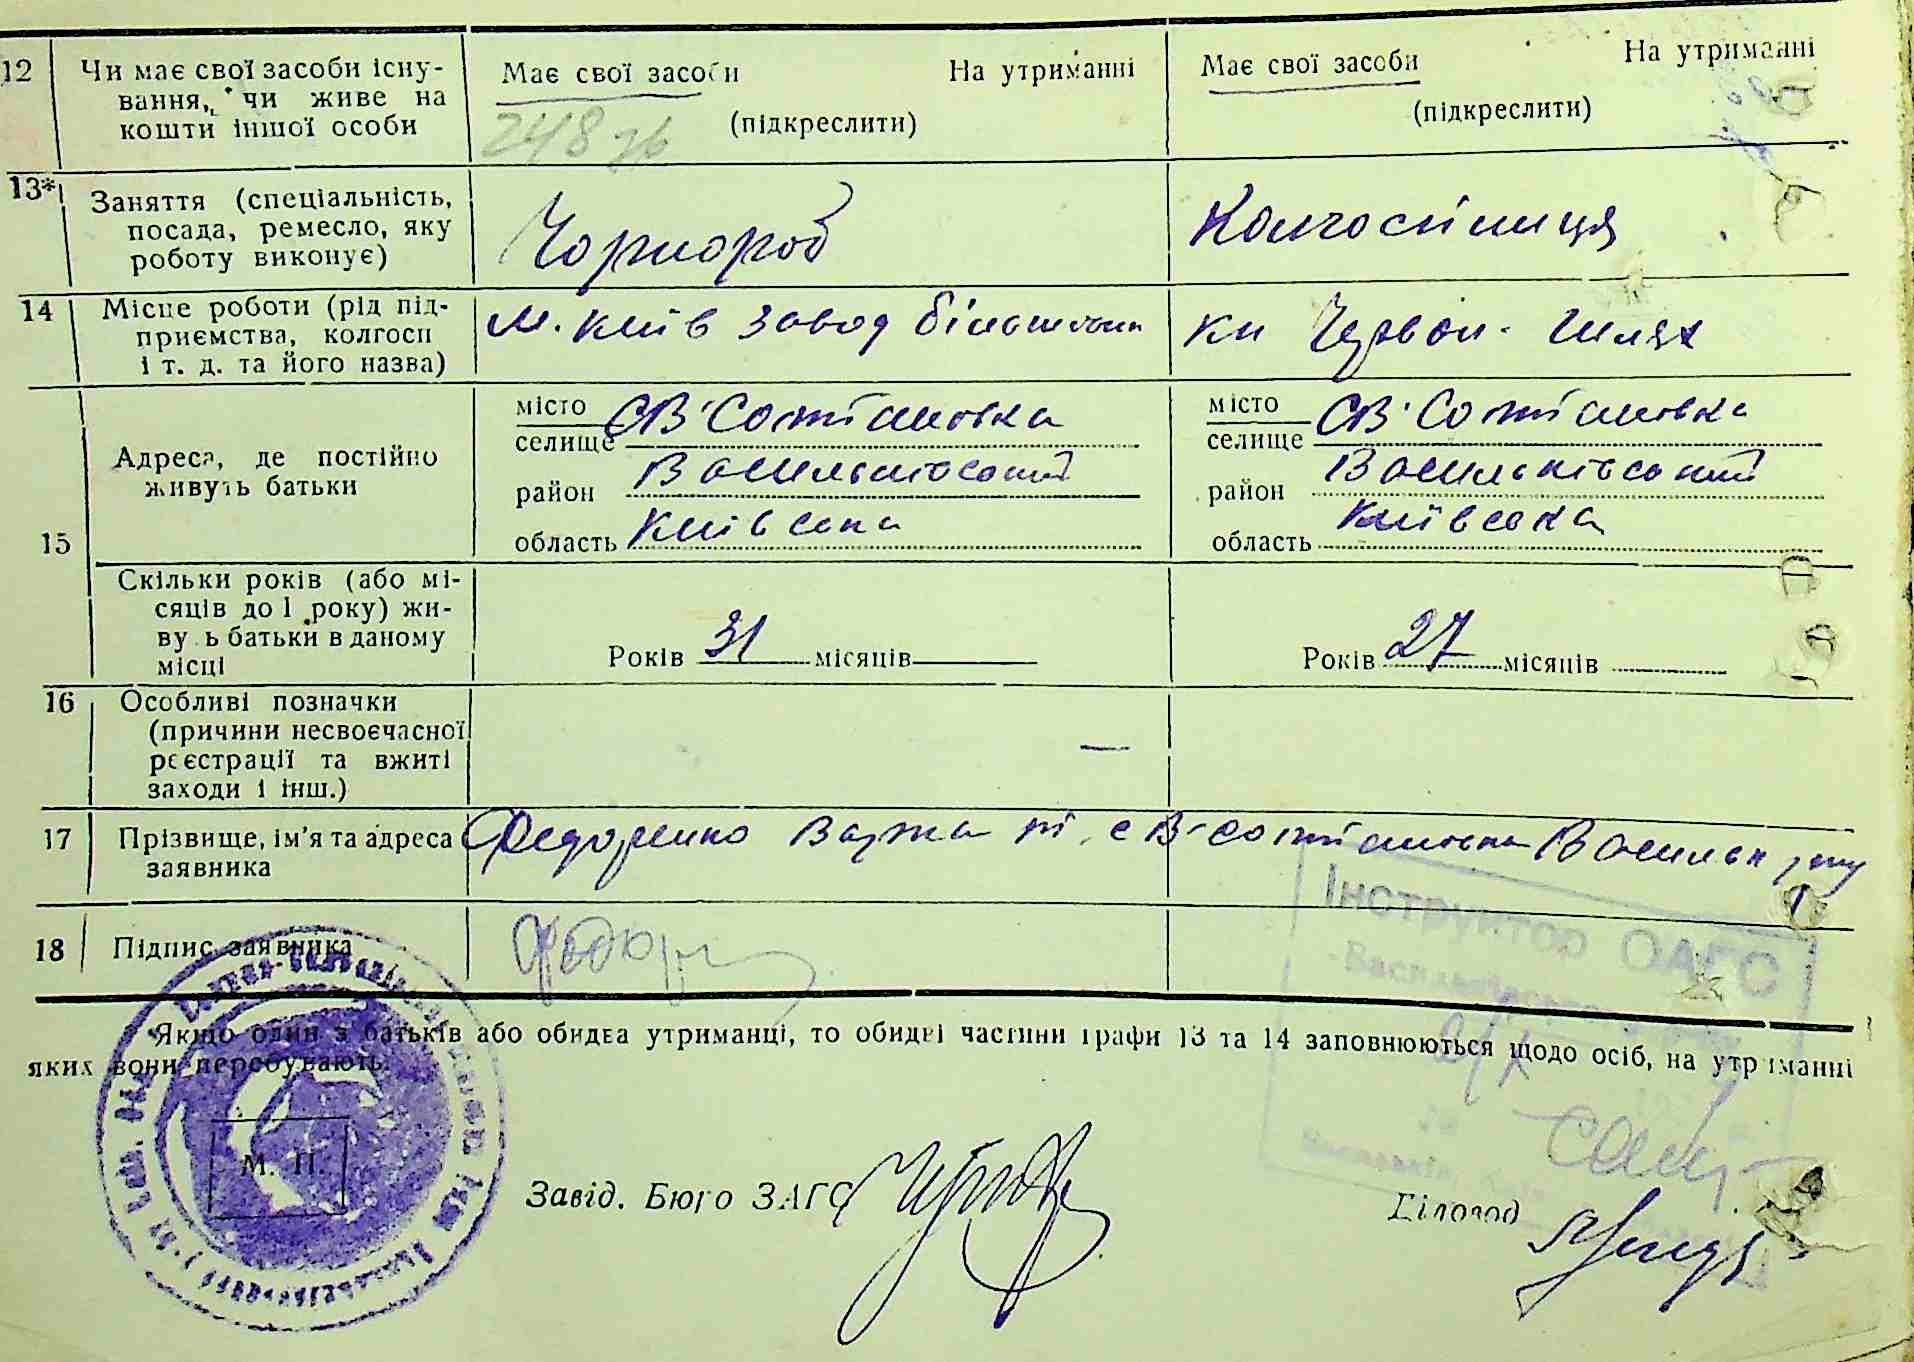 12 Чи має свої засоби існу-
вання, чи живе на
кошти іншої особи
Має свої засоби На утриманні
(підкреслити)
248
Має свої засоби На утриманні
(підкреслити)
13* Заняття (спеціальність,
посада, ремесло, яку
роботу виконує)
Чорнороб
Колгоспниця
14 Місце роботи (рід під-
приємства, колгосп
і т. д. та його назва)
м. Київ завод більшовик
кп Червон. Шлях
15 Адреса, де постійно
живуть батьки
місто
селище Єв'Сотніловка
район Васильківський
область Київська
місто
селище Єв'Сотніловка
район Васильківський
область Київська
Скільки років (або мі-
сяців до 1 року) жи-
ву ь батьки в даному
місці
Років 31 місяців
Років 27 місяців
16 Особливі позначки
(причини несвоєчасної
реєстрації та вжиті
заходи і інш.)
—
17 Прізвище, ім'я та адреса
заявника
Федоренко
18 Підпис заявника
Федор
Інструктор ОАГС
Якщо один з батьків або обидва утриманці, то обидві частини графи 13 та 14 заповнюються щодо осіб, на утриманні
яких вони перебувають.
М. П.
Завід. Бюро ЗАГС
Діловод